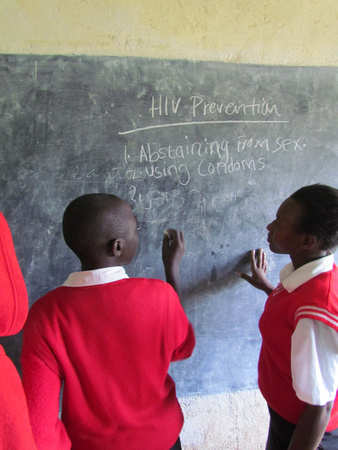 HIV Prevention
1. Abstaining from sex.
2. Using Condoms
3.